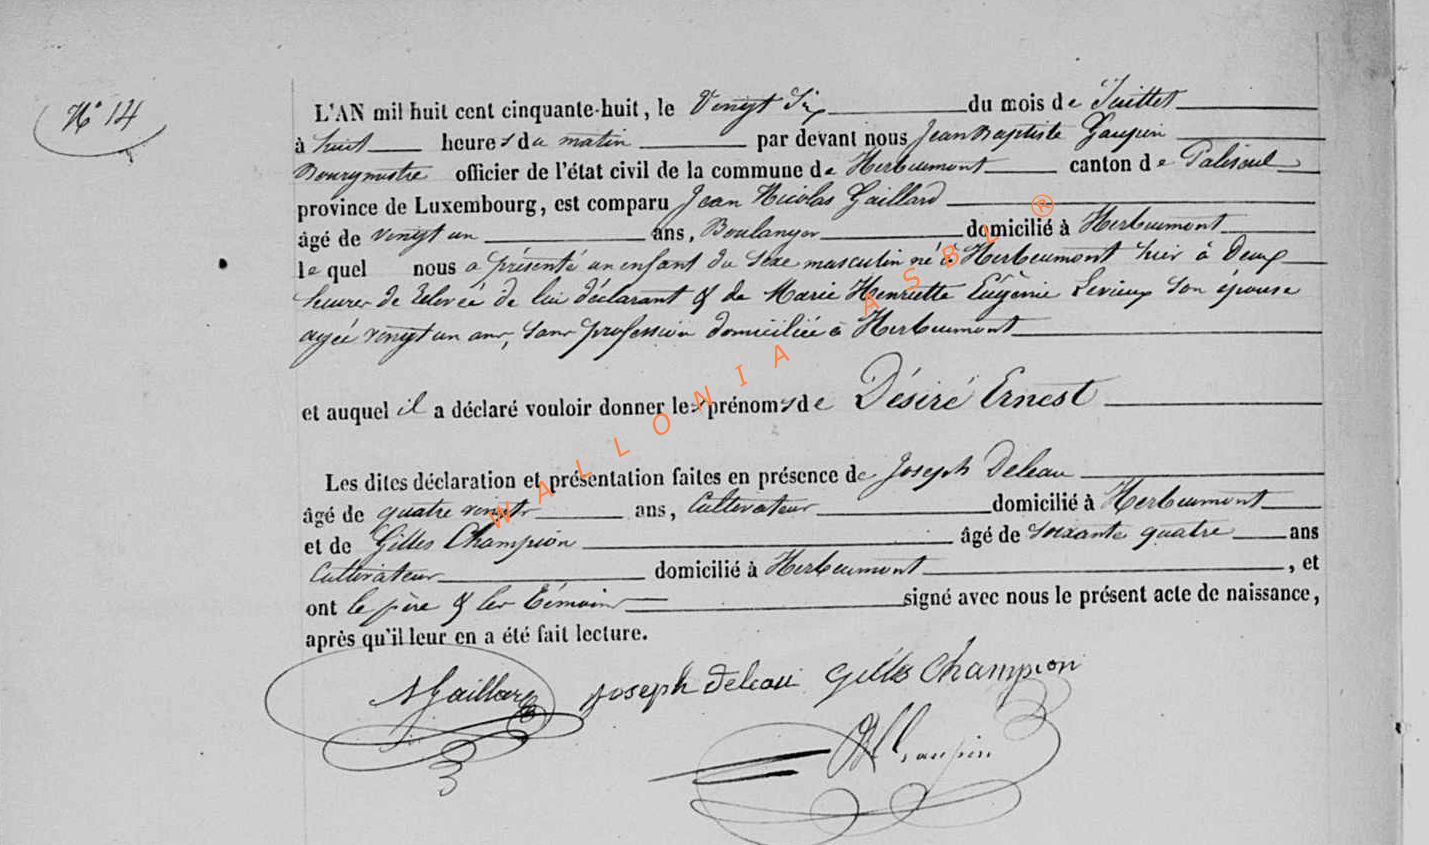 N° 14
L'AN mil huit cent cinquante-huit, le Vingt Six du mois de Juillet
à huit heures du matin par devant nous Jean Baptiste Gaupin
Bourgmestre officier de l'état civil de la commune de Herbeumont canton de Paliseul
province de Luxembourg, est comparu Jean Nicolas Gaillard
âgé de vingt un ans, Boulanger domicilié à Herbeumont
le quel nous a présenté un enfant du sexe masculin né à Herbeumont hier à Deux
heures de relevée de lui déclarant & de Marie Henriette Eugénie Levieux son épouse
agée vingt un ans, sans profession domiciliée à Herbeumont
et auquel il a déclaré vouloir donner les prénoms de Désiré Ernest
Les dites déclaration et présentation faites en présence de Joseph Deleau
âgé de quatre vingts ans, Cultivateur domicilié à Herbeumont
et de Gilles Champion âgé de soixante quatre ans
Cultivateur domicilié à Herbeumont, et
ont le père & les témoins signé avec nous le présent acte de naissance,
après qu'il leur en a été fait lecture.
Gaillard Joseph Deleau Gilles Champion
Gaupin
WALLONIA ASBL ®